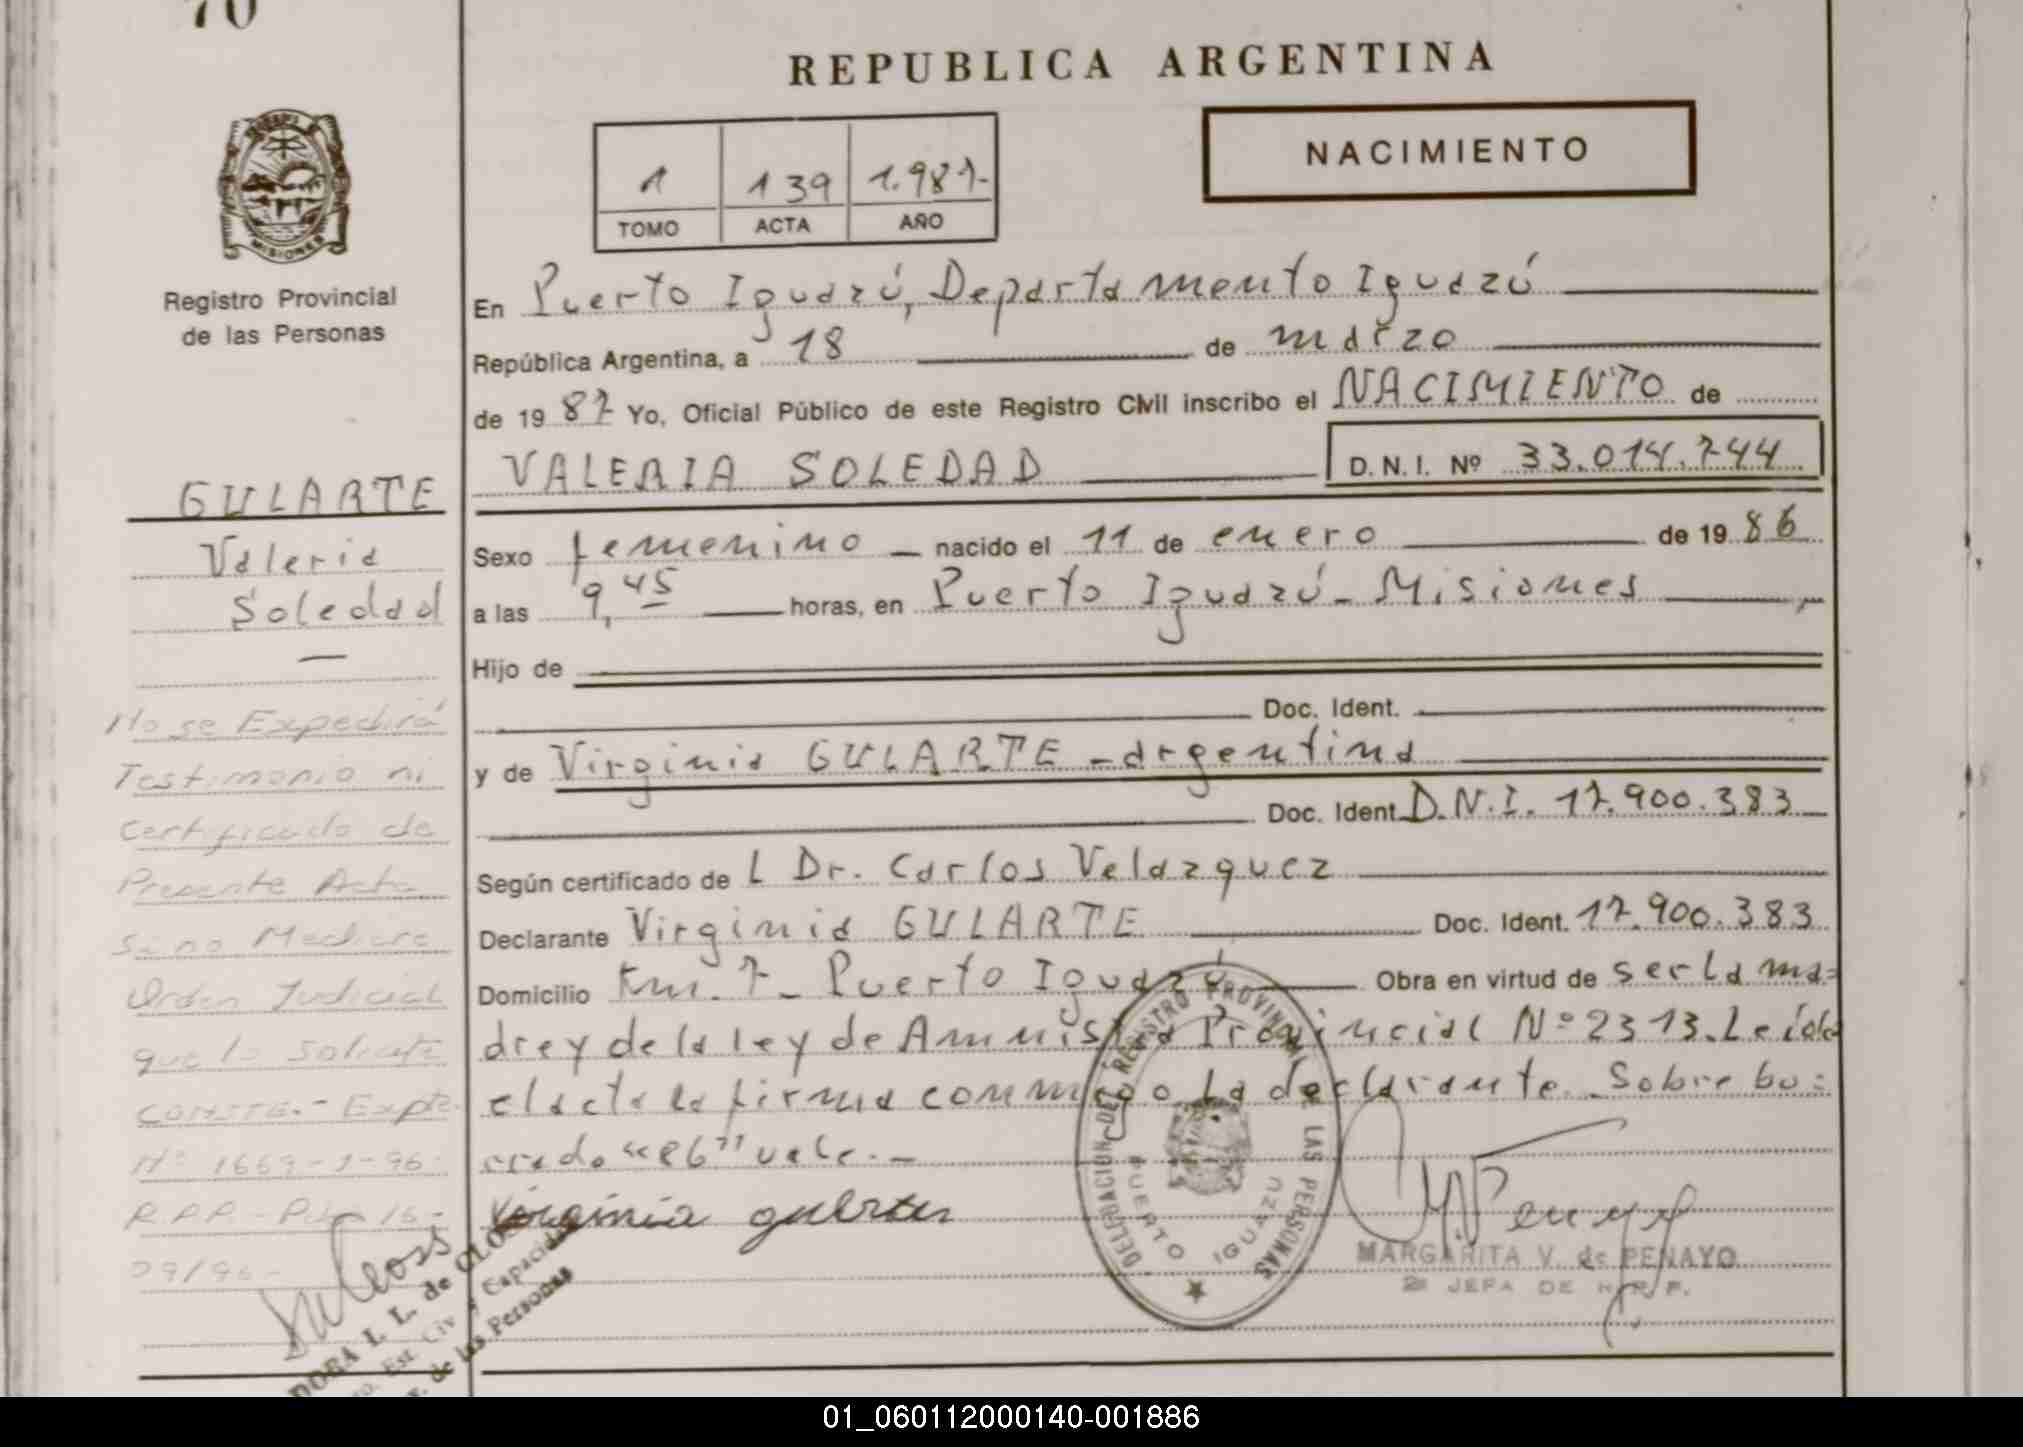 70
REPUBLICA ARGENTINA
NACIMIENTO
1 139 1.987-
TOMO ACTA AÑO
MISIONES
Registro Provincial
de las Personas
GULARTE
Valeria
Soledad
—
No se Expedirá
Testimonio ni
Certificado de
Presente Acta
sino Mediare
Orden Judicial
que lo solicite
CONSTE.- Expte.
Nº 1669-J-96-
R.P.P.-
09/96-
En Puerto Iguazú, Departamento Iguazú
República Argentina, a 18 de marzo
de 1987 Yo, Oficial Público de este Registro Civil inscribo el NACIMIENTO de
VALERIA SOLEDAD D.N.I. Nº 33.014.744
Sexo femenino — nacido el 11 de enero de 1986
a las 9,45 horas, en Puerto Iguazú - Misiones
Hijo de
Doc. Ident.
y de Virginia GULARTE - argentina
Doc. Ident. D.N.I. 17.900.383
Según certificado de L Dr. Carlos Velazquez
Declarante Virginia GULARTE Doc. Ident. 17.900.383
Domicilio Km. 7 - Puerto Iguazú Obra en virtud de ser La ma=
dre y de la ley de Amnistia Provincial Nº 2313. Leída
el acta la firma conmigo La declarante. Sobre bo=
rrado "86" vale.-
Virginia gularte
DELEGACION DEL REGISTRO PROVINCIAL DE LAS PERSONAS
PUERTO IGUAZU
MARGARITA V. de PENAYO
2a JEFA DE N.R.P.
DORA L. L. de
Est. Civ. y Capacidad
de las Personas
01_060112000140-001886